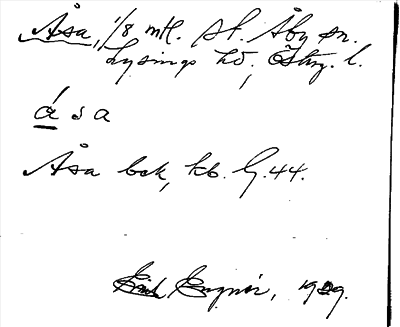 Åsa, 1/8 mtl. St. Åby sn.
Lysings hd, Östg. l.
ása
Åsa bsk, kb. G. 44.
Engnér, 1929.